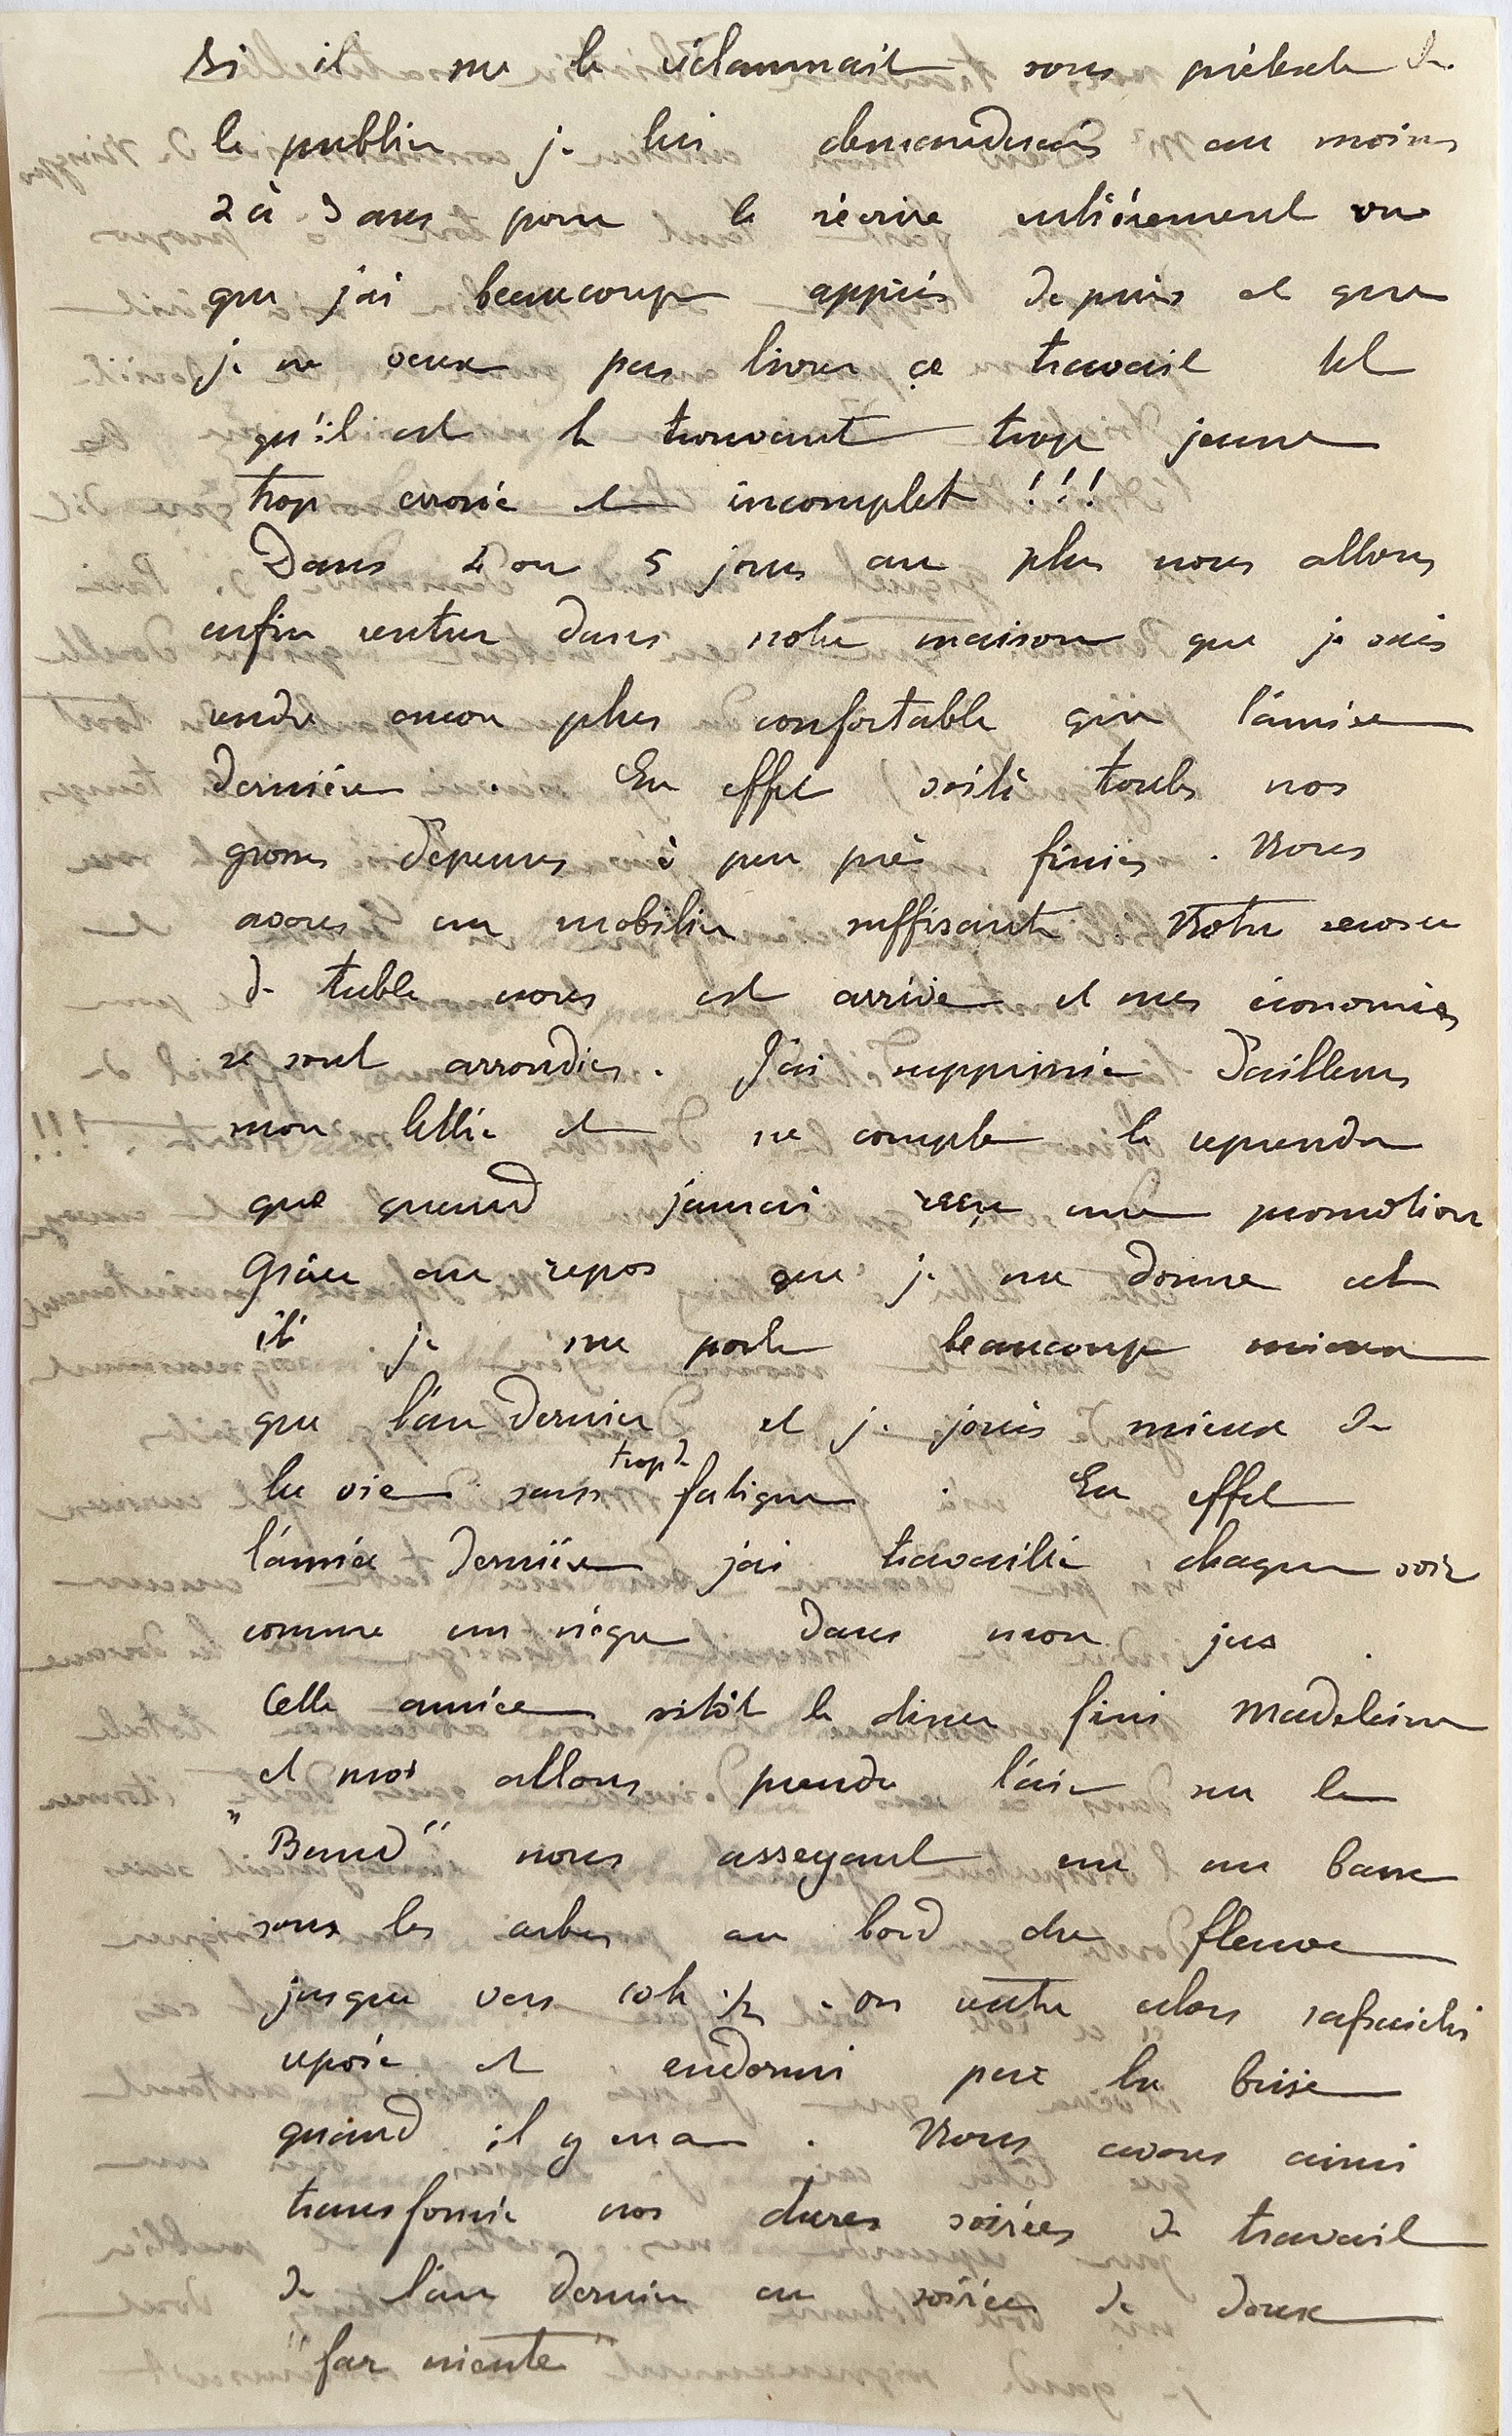 Si il me le réclammait sous prétexte de
le publier je lui demanderais au moins
2 à 3 ans pour le récrire entièrement vu
que j'ai beaucoup appris depuis et que
je ne veux pas livrer ce travail tel
qu'il est le trouvant trop jeune
trop erroné et incomplet !!!
Dans 4 ou 5 jours au plus nous allons
enfin rentrer dans notre maison que je vais
rendre encore plus confortable que l'année
dernière. En effet voilà toutes nos
grosses dépenses à peu près finies. Nous
avons un mobilier suffisant. Notre
de table nous est arrivé et mes économies
se sont arrondies. J'ai supprimé d'ailleurs
mon lettré et ne compte le reprendre
que quand j'aurai reçu une promotion
Grâce au repos que je me donne cet
été je me porte beaucoup mieux
que l'an dernier et je jouis mieux de
la vie sans trop de fatigue. En effet
l'année dernière j'ai travaillé chaque soir
comme un nègre dans mon jus.
Cette année sitôt le diner fini Madeleine
et moi allons prendre l'air sur le
"Bund" nous asseyant sur un banc
sous les arbres au bord du fleuve
jusque vers 10h ½. on rentre alors rafraichi
reposé et endormi par la brise
quand il y en a. Nous avons ainsi
transformé nos dures soirées de travail
de l'an dernier en soirées de doux
"far niente"